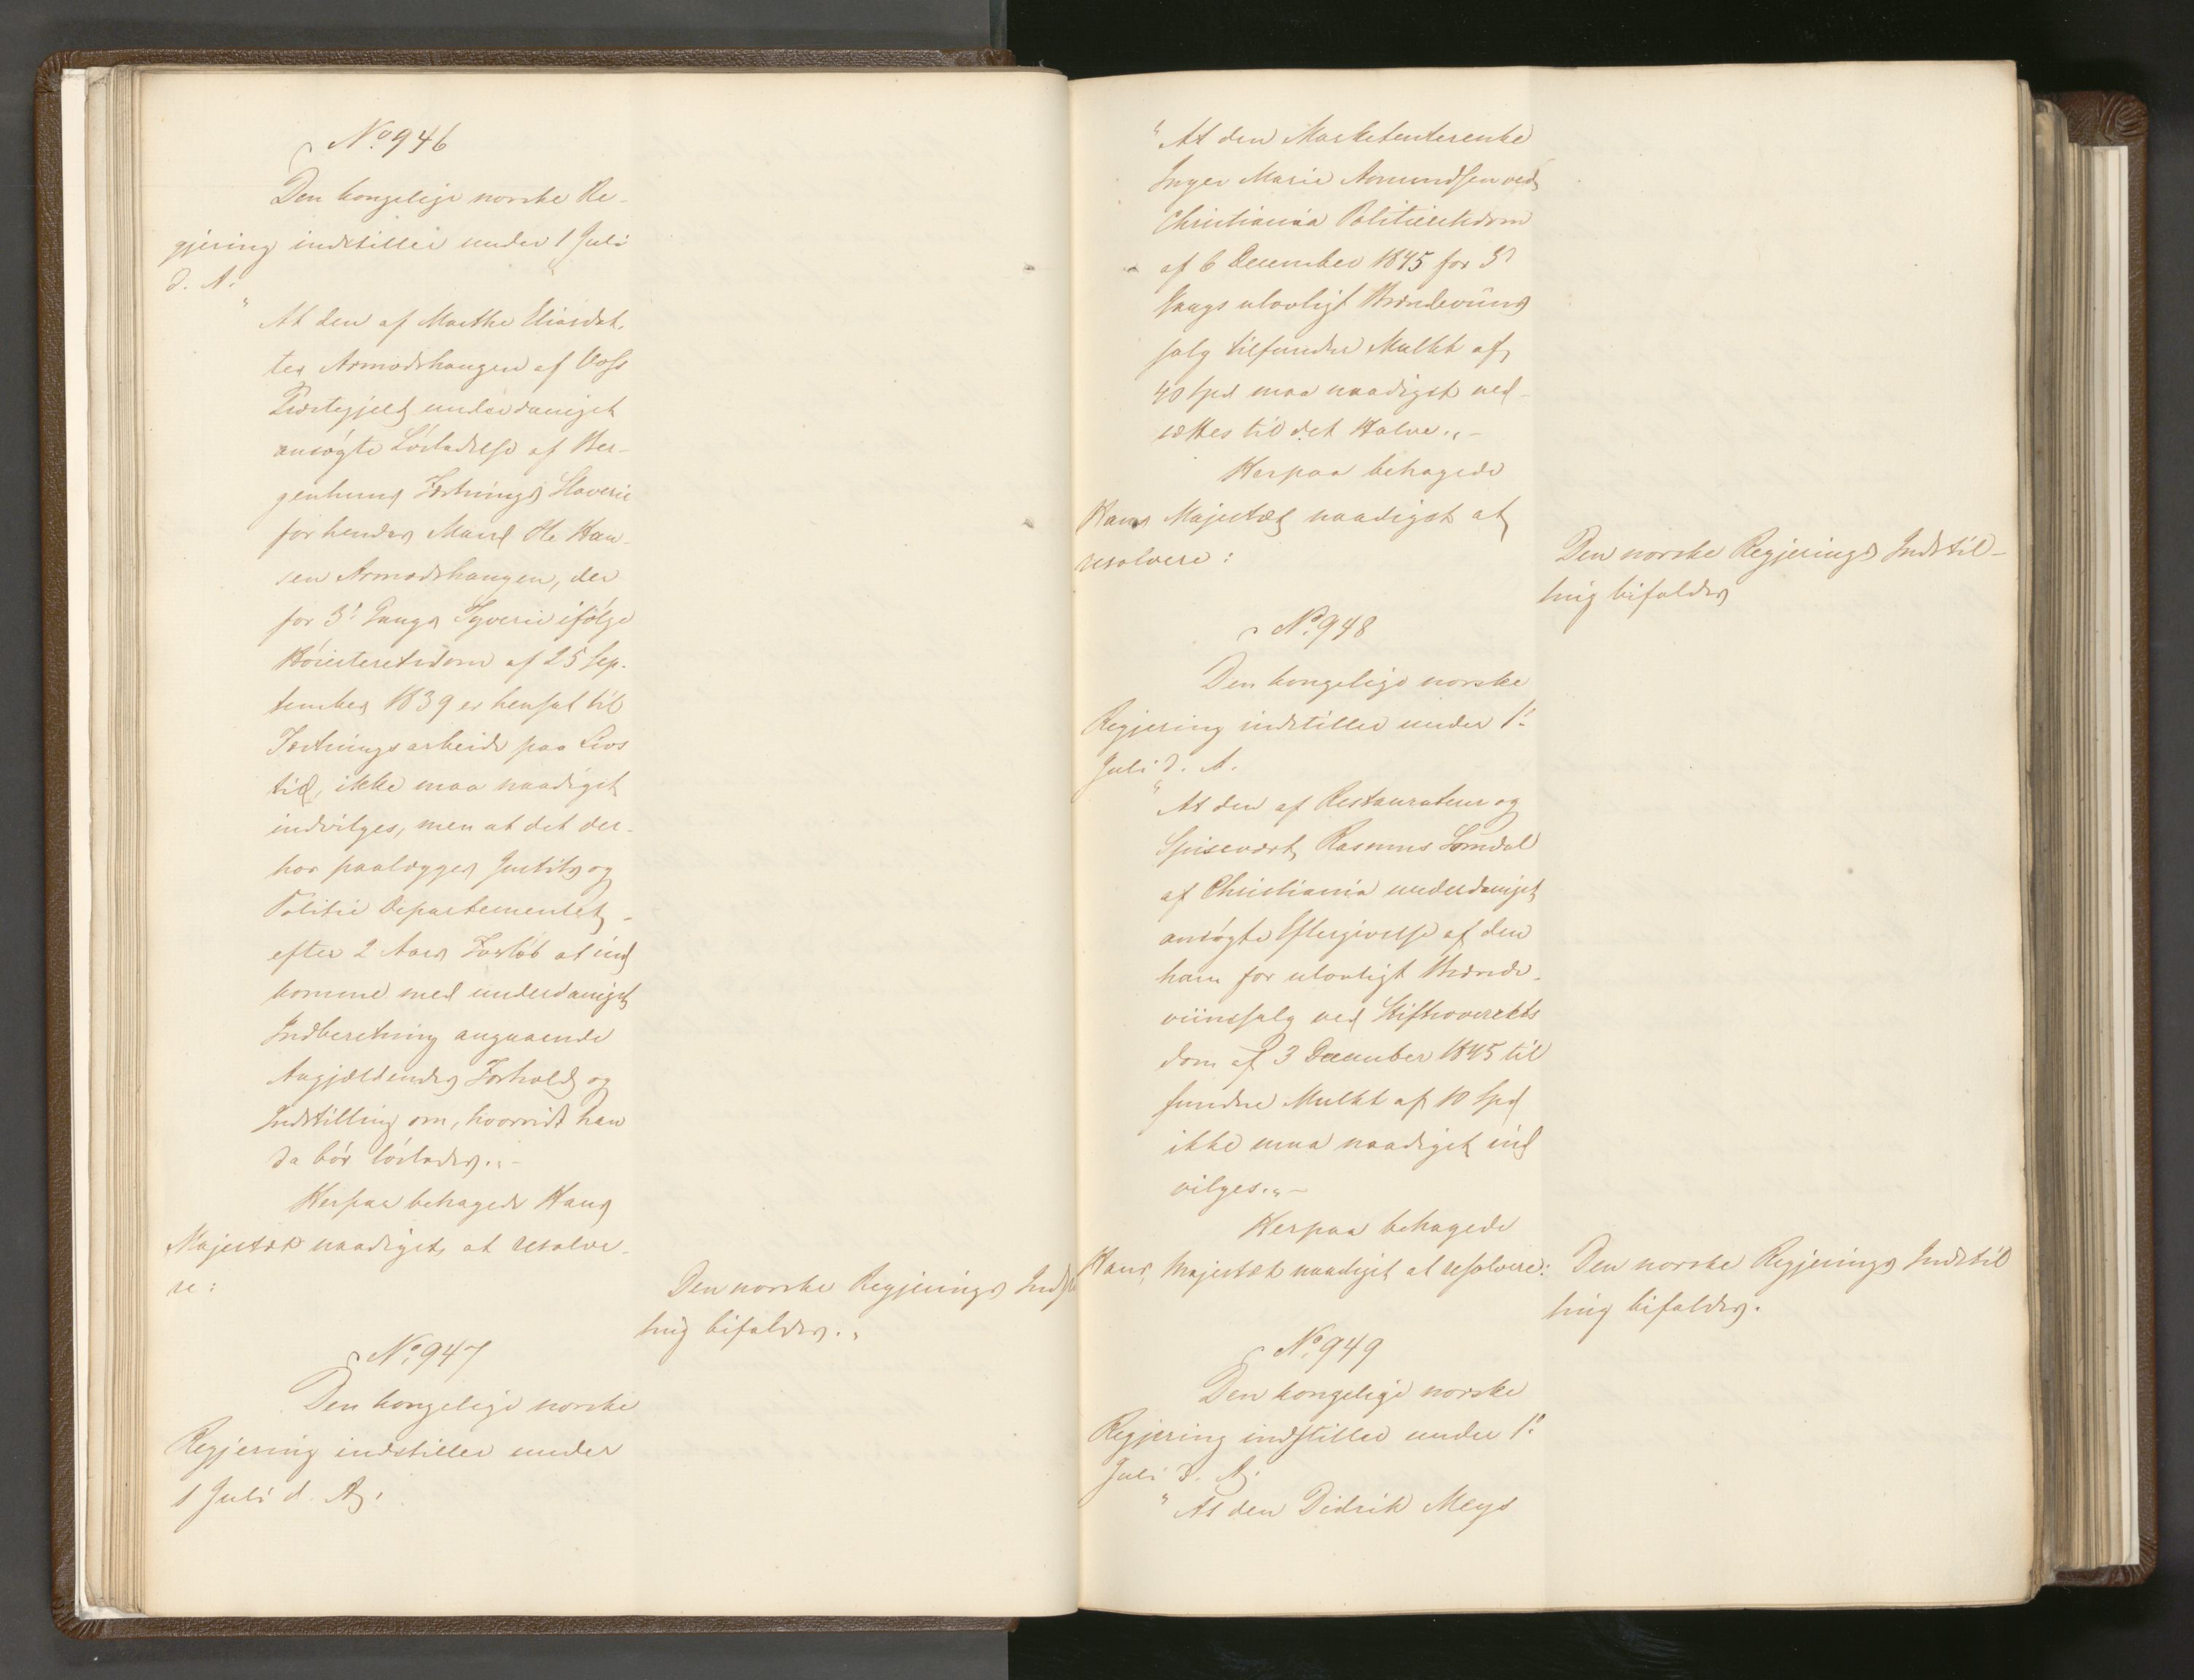 No. 946
Den kongelige norske Re-
gjering indstiller under 1 Juli
d. A.
"At den af Marthe Eliasdat-
ter Armodshaugen af Voss
Præstegjeld underdanigst
ansøgte Løsladelse af Ber-
genhuus Fæstnings Slaverie
for hendes Mand Ole Han-
sen Armodshaugen, der
for 3die Gangs Tyverie ifølge
Høiesteretsdom af 25 Sep-
tember 1839 er hensat til
Fæstningsarbeide paa Livs
tid, ikke maa naadigst
indvilges, men at det der-
hos paalægges Justits og
Politie Departementet
efter 2 Aars Forløb at ind
komme med underdanigst
Indberetning angaaende
Angjældendes Forhold og
Indstilling om, hvorvidt han
da bør løslades."-
Herpaa behagede Hans
Majestæt naadigst at resolve-
re:
Den norske Regjerings Indstil
ling bifaldes.
No. 947
Den kongelige norske
Regjering indstiller under
1 Juli d. A.
"At den Marketenterenke
Inger Marie Amundsen ved
Christiania Politieretsdom
af 6 December 1845 for 3die
Gangs ulovligt Brændeviins
salg tilfundne Mulkt af
40 Spd maa naadigst ned-
sættes til det Halve."-
Herpaa behagede
Hans Majestæt naadigst at
resolvere:
Den norske Regjerings Indstil-
ling bifaldes
No. 948
Den kongelige norske
Regjering indstiller under 1ste
Juli d. A.
"At den af Restaurateur og
Spisevært Rasmus
af Christiania underdanigst
ansøgte Eftergivelse af den
ham for ulovligt Brænde-
viinssalg ved Stiftsoverrets
dom af 3 December 1845 til
fundne Mulkt af 10 Spd
ikke maa naadigst ind
vilges."-
Herpaa behagede
Hans Majestæt naadigst at resolvere:
Den norske Regjerings Indstil
ling bifaldes.
No. 949
Den kongelige norske
Regjering indstiller under 1ste
Juli d. A.
"At den Didrik Meys